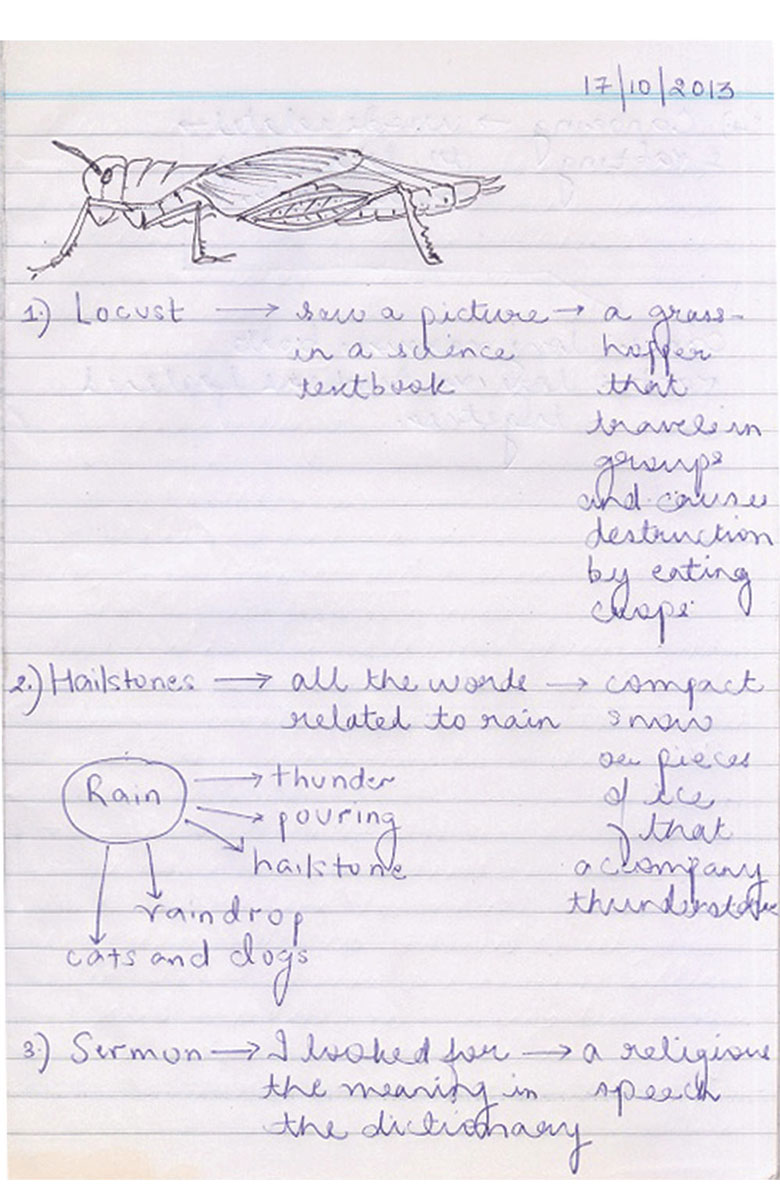 17/10/2013
1.) Locust → saw a picture → a grass-
in a science hopper
textbook that
travels in
groups
and causes
destruction
by eating
crops
2.) Hailstones → all the words → compact
related to rain snow
or pieces
Rain → thunder of ice
→ pouring that
→ hailstone accompany
→ raindrop thunderstorm
→ cats and dogs
3.) Sermon → I looked for → a religious
the meaning in speech
the dictionary